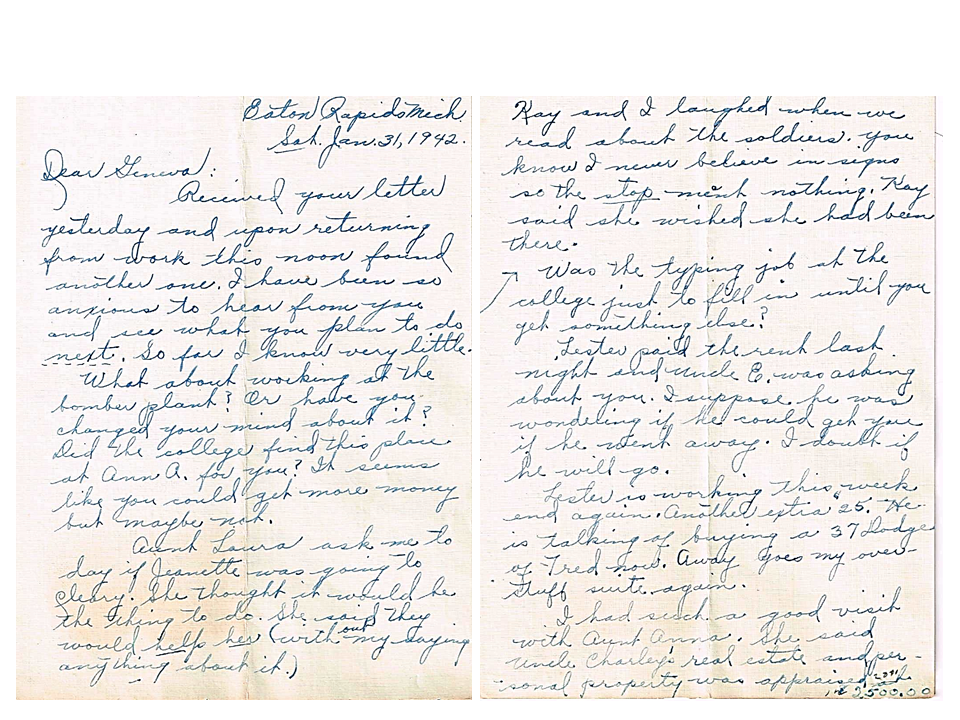 Eaton Rapids Mich
Sat. Jan. 31, 1942.
Dear Geneva:
Received your letter
yesterday and upon returning
from work this noon found
another one. I have been so
anxious to hear from you
and see what you plan to do
next. So far I know very little.
What about working at the
bomber plant? Or have you
changed your mind about it?
Did the college find this place
at Ann A. for you? It seems
like you could get more money
but maybe not.
Aunt Laura ask me to
day if Jeanette was going to
Cleary. She thought it would be
the thing to do. She said they
would help her (with out my saying
anything about it.)
Kay and I laughed when we
read about the soldiers. you
know I never believe in signs
so the stop ment nothing. Kay
said she wished she had been
there.
Was the typing job at the
college just to fill in until you
get something else?
Lester paid the rent last
night and Uncle E. was asking
about you. I suppose he was
wondering if he could get you
if he went away. I doubt if
he will go.
Lester is working this week
end again. Another extra 25. He
is talking of buying a 37 Dodge
of Fred now. Away goes my over-
stuff suite again.
I had such a good visit
with Aunt Anna. She said
Uncle Charley's real estate and per-
sonal property was appraised at
2500.00